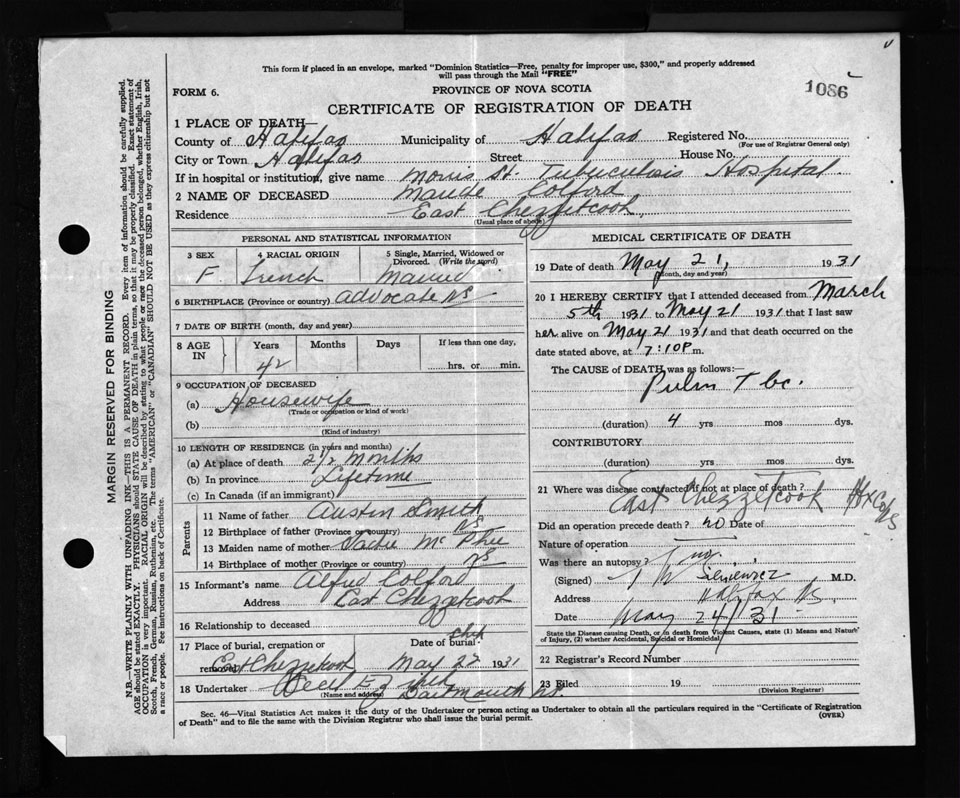 This form if placed in an envelope, marked "Dominion Statistics—Free, penalty for improper use, $300," and properly addressed
will pass through the Mail "FREE"
FORM 6.
PROVINCE OF NOVA SCOTIA
1086
CERTIFICATE OF REGISTRATION OF DEATH
1 PLACE OF DEATH—
County of Halifax Municipality of Halifax Registered No.
(For use of Registrar General only)
City or Town Halifax Street House No.
If in hospital or institution, give name Morris St Tuberculosis Hospital
2 NAME OF DECEASED Maude Colford
Residence East Chezzetcook
(Usual place of abode)
PERSONAL AND STATISTICAL INFORMATION
3 SEX 4 RACIAL ORIGIN 5 Single, Married, Widowed or
Divorced. (Write the word)
F French Married
6 BIRTHPLACE (Province or country) Advocate NS
7 DATE OF BIRTH (month, day and year)
8 AGE IN Years Months Days If less than one day,
42 hrs. or min.
9 OCCUPATION OF DECEASED
(a) Housewife
(Trade or occupation or kind of work)
(b)
(Kind of industry)
10 LENGTH OF RESIDENCE (in years and months)
(a) At place of death 2½ months
(b) In province Lifetime
(c) In Canada (if an immigrant)
Parents
11 Name of father Austin Smith
12 Birthplace of father (Province or country) NS
13 Maiden name of mother Sadie McPhee
14 Birthplace of mother (Province or country) NS
15 Informant's name Alfred Colford
Address East Chezzetcook
16 Relationship to deceased
17 Place of burial, cremation or Date of burial
removal East Chezzetcook May 22 1931
18 Undertaker Cecil E
(Name and address) Dartmouth NS.
MEDICAL CERTIFICATE OF DEATH
19 Date of death May 21, 1931
(Month, day and year)
20 I HEREBY CERTIFY that I attended deceased from March
5th 1931 to May 21 1931 that I last saw
her alive on May 21 1931 and that death occurred on the
date stated above, at 7:10P m.
The CAUSE of DEATH was as follows:—
Pulm Tbc.
(duration) 4 yrs mos dys.
CONTRIBUTORY
(duration) yrs mos dys.
21 Where was disease contracted if not at place of death?
East Chezzetcook Hfx Co NS
Did an operation precede death? no Date of
Nature of operation
Was there an autopsy?
(Signed) M.D.
Address Halifax NS
Date May 24/31
State the Disease causing Death, or in death from Violent Causes, state (1) Means and Nature
of Injury, (2) whether Accidental, Suicidal or Homicidal
22 Registrar's Record Number
23 Filed 19
(Division Registrar)
Sec. 46—Vital Statistics Act makes it the duty of the Undertaker or person acting as Undertaker to obtain all the particulars required in the "Certificate of Registration
of Death" and to file the same with the Division Registrar who shall issue the burial permit.
(OVER)
MARGIN RESERVED FOR BINDING
N.B.—WRITE PLAINLY WITH UNFADING INK—THIS IS A PERMANENT RECORD. Every item of information should be carefully supplied.
AGE should be stated EXACTLY. PHYSICIANS should STATE CAUSE OF DEATH in plain terms, so that it may be properly classified. Exact statement of
OCCUPATION is very important. RACIAL ORIGIN will be described by stating to what people or race the deceased person belonged, whether English, Irish,
Scotch, French, German, Russian, Ruthenian, etc. The terms "AMERICAN" or "CANADIAN" SHOULD NOT BE USED as they express citizenship but not
a race or people. Fee instructions on back of Certificate.